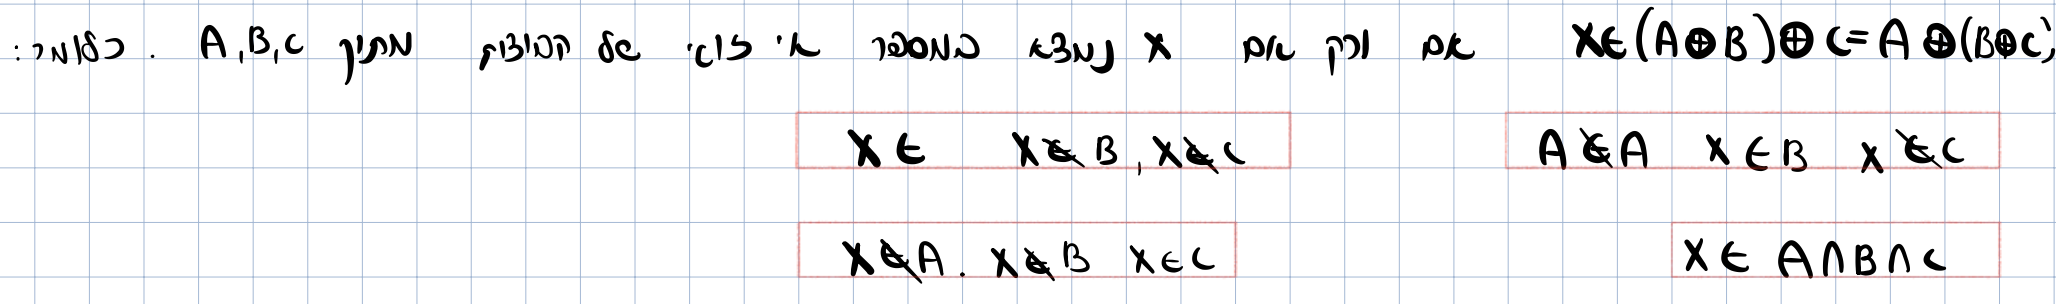 x∈(A⊕B)⊕C=A⊕(B⊕C) אם ורק אם x נמצא במספר אי זוגי של קבוצות מתוך A,B,C . כלומר:
A∉A x∈B x∉C
x∈ x∉B, x∉C
x∈ A∩B∩C
x∉A. x∉B x∈C